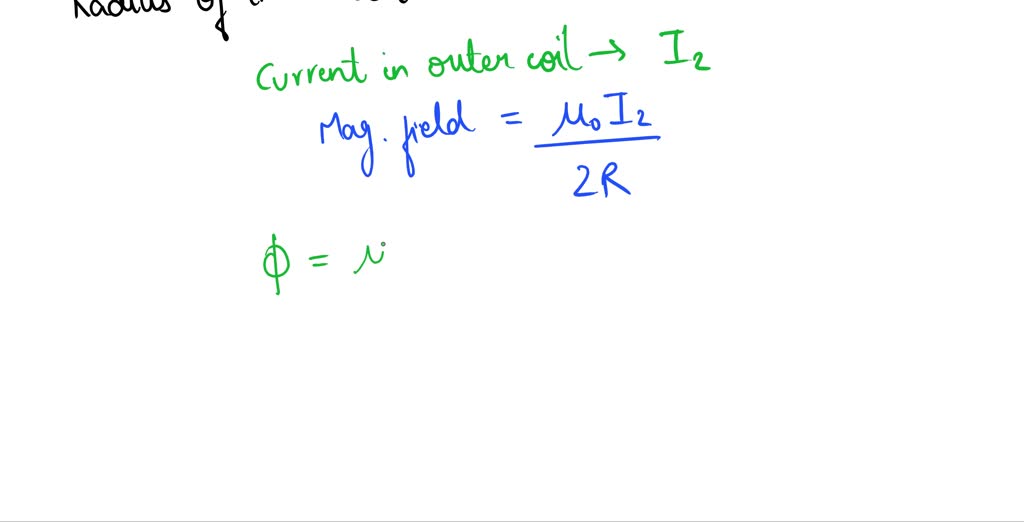 Radius of
Current in outer coil → I₂
Mag. field = μ₀I₂ / 2R
ϕ =